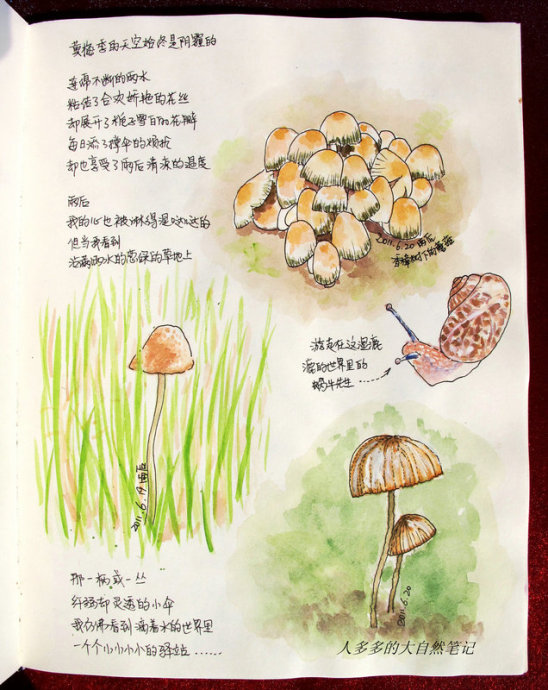 黄梅季的天空始终是阴霾的
连绵不断的雨水
粘住了合欢娇艳的花丝
却展开了栀子雪白的花瓣
每日添了撑伞的烦扰
却也享受了雨后清凉的温度
雨后
我的心也被淋得湿哒哒的
但当我看到
沾满雨水的葱绿的草地上
2011.6.20 雨后
香樟树下的蘑菇
游走在这湿漉
漉的世界里的
蜗牛先生
2011.6.19 雨后
2011.6.20
那一柄或一丛
纤弱却灵透的小伞
我仿佛看到滴着水的世界里
一个个小小小小的驿站……
人多多的大自然笔记